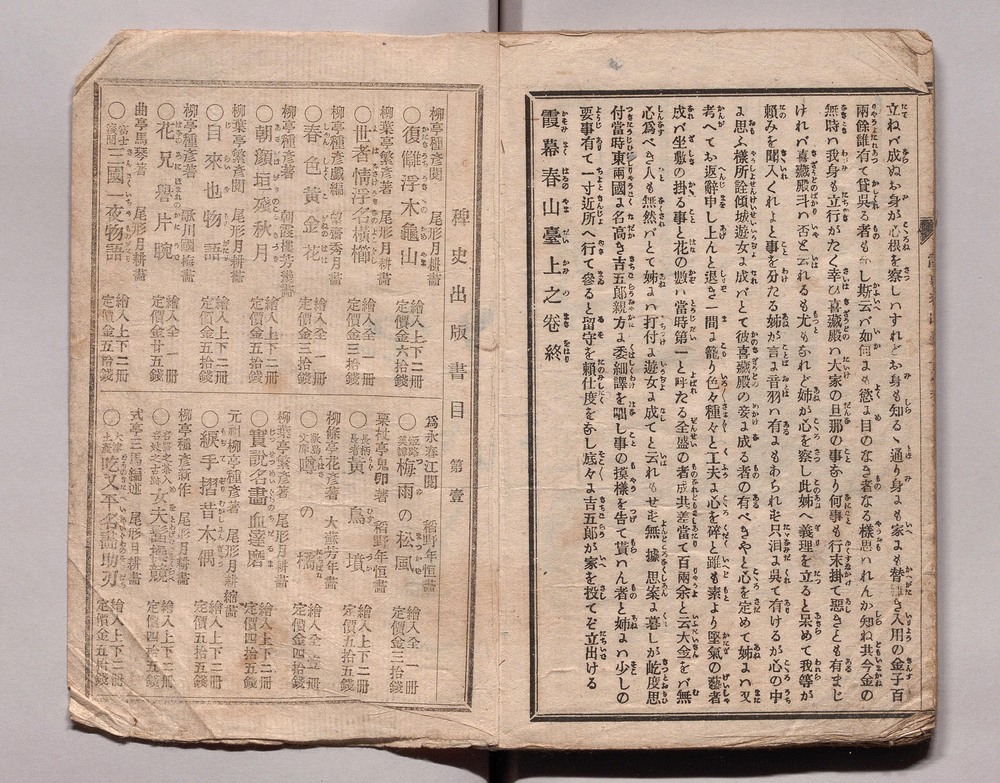 立ねバ成ぬお身が心根を察しハすれどお身も知るゝ通り身よも家よも替難き入用の金子百
両餘誰有て貸呉る者もなし斯云バ如何よも慾よ目のなき者なる様思ハれんか知ね共今金の
無時ハ我身も立行がたく幸ひ喜藏殿ハ大家の旦那の事なり何事も行末掛て惡きとも有まじ
けれバ喜藏殿斗ハ否と云れるも尤もなれど姉が心を察し此姉へ義理を立ると呆めて我等が
頼みを聞入くれよと事を分たる姉が言よ音羽ハ有よもあられず只泪よ呉て有けるが心の中
よ思ふ様所詮傾城遊女よ成バとて彼喜藏殿の妾よ成る者の有べきやと心を定めて姉よハ又
考へてお返辭申し上んと退き一間よ籠り色々種々と工夫よ心を碎と雖も素より堅氣の藝者
成バ坐敷の掛る事と花の數ハ當時第一と呼たる全盛の者成共差當て百兩余と云大金をバ無
心爲べき人も無然バとて姉よハ打付よ遊女よ成してと云れもせず無據思案よ暮しが屹度思
付當時東兩國よ名高き吉五郎親方よ委細譯を咄し事の摸樣を告て貰ハん者と姉よハ少しの
要事有て一寸近所へ行て參ると留守を頼仕度をなし底々よ吉五郎が家を投てぞ立出ける
霞幕春山臺上之卷終
稗史出版書目 第壹
柳亭種彦閲 尾形月耕畵
○復讎浮木龜山 繪入上下二冊 定價金六拾錢
柳葉亭繁彦著 尾形月耕畵
○世者情浮名横櫛 繪入全一冊 定價金三拾錢
柳亭種彦戯編 望齋秀月畵
○春色黄金花 繪入全一冊 定價金三拾錢
柳亭種彦著 朝霞樓芳幾畵
○朝顔垣殘秋月 繪入上下二冊 定價金五拾錢
柳葉亭繁彦閲 尾形月耕畵
○自來也物語 繪入上下二冊 定價金五拾錢
柳亭種彦著 歌川國梅畵
○花兄譽片腕 繪入全一冊 定價金廿五錢
曲亭馬琴著 尾形月耕畵
○富士淺間三國一夜物語 繪入上下二冊 定價金五拾錢
爲永春江閲 稻野年恒畵
○梅雨の松風 繪入全一冊 定價金三拾錢
栗杖亭鬼卵著 稻野年恒畵
○長柄長者黄鳥墳 繪入上下二冊 定價五拾五錢
柳條亭花彦著 大蘇芳年畵
○噂の橘 繪入全壹冊 定價金四拾錢
柳葉亭繁彦著 尾形月耕畵
○實説名畵血達磨 繪入上下二冊 定價四拾五錢
元祖柳亭種彦著 尾形月耕縮畵
○綟手摺昔木偶 繪入上下二冊 定價五拾五錢
柳亭種彦新作 尾形月耕畵
繪入上下二冊 定價四拾五錢
式亭三馬編述 尾形月耕畵
○大津土產吃又平名畵助刃 繪入上下二冊 定價金五拾錢